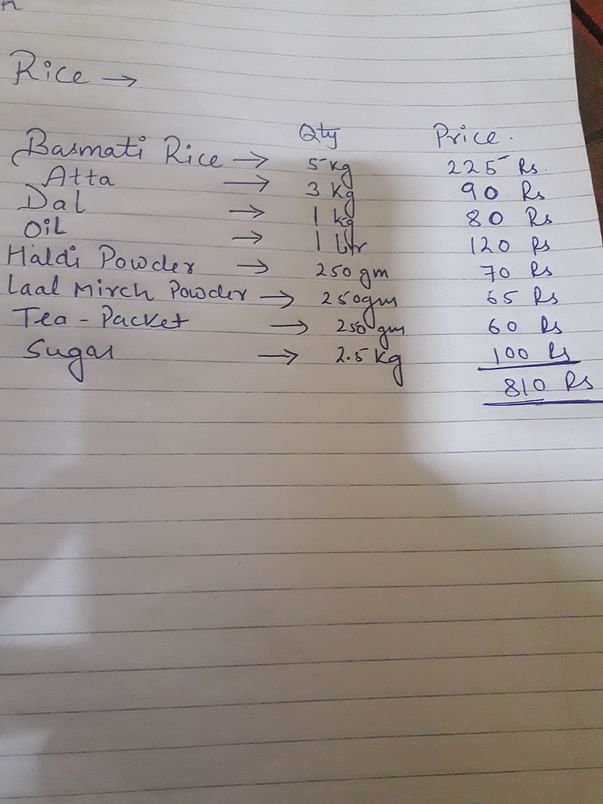 Rice →
Qty Price.
Basmati Rice → 5 kg 225 Rs.
Atta → 3 kg 90 Rs
Dal → 1 kg 80 Rs
Oil → 1 Ltr 120 Rs
Haldi Powder → 250 gm 70 Rs
Laal Mirch Powder → 250gm 65 Rs
Tea - Packet → 250 gm 60 Rs
Sugar → 2.5 kg 100 Rs
810 Rs